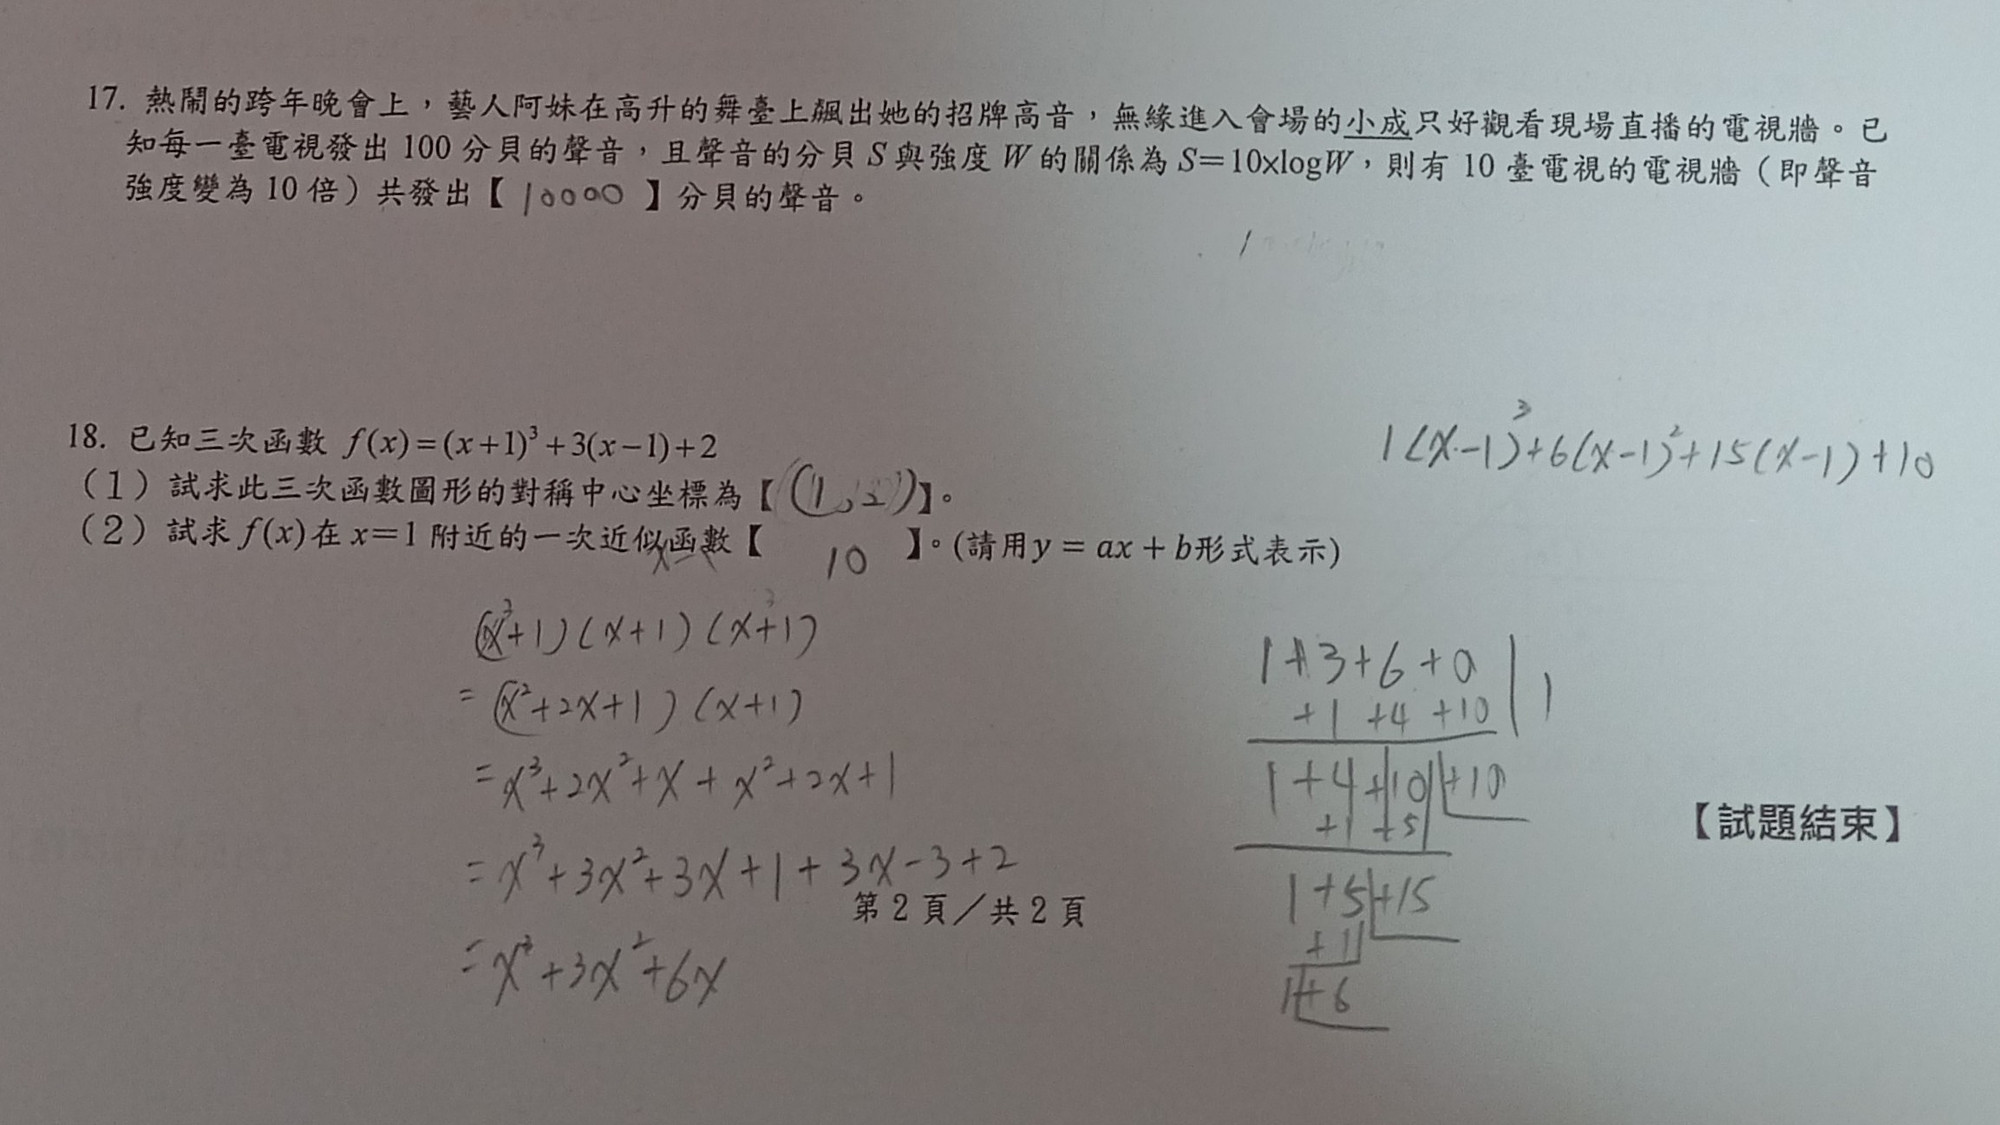 17. 熱鬧的跨年晚會上，藝人阿妹在高升的舞臺上飆出她的招牌高音，無緣進入會場的小成只好觀看現場直播的電視牆。已
知每一臺電視發出 100 分貝的聲音，且聲音的分貝 S 與強度 W 的關係為 S=10×logW，則有 10 臺電視的電視牆（即聲音
強度變為 10 倍）共發出【 10000 】分貝的聲音。
18. 已知三次函數 f(x)=(x+1)³+3(x−1)+2
1(x-1)³+6(x-1)²+15(x-1)+10
（1）試求此三次函數圖形的對稱中心坐標為【 (1,2) 】。
（2）試求 f(x)在 x=1 附近的一次近似函數【 10 】。(請用y = ax + b形式表示)
(x+1)(x+1)(x+1)
= (x²+2x+1)(x+1)
= x³+2x²+x+x²+2x+1
= x³+3x²+3x+1+3x-3+2
= x³+3x²+6x
1+3+6+0 | 1
+1 +4 +10
1+4+10 +10
+1 +5
1+5+15
+1
1+6
【試題結束】
第 2 頁／共 2 頁